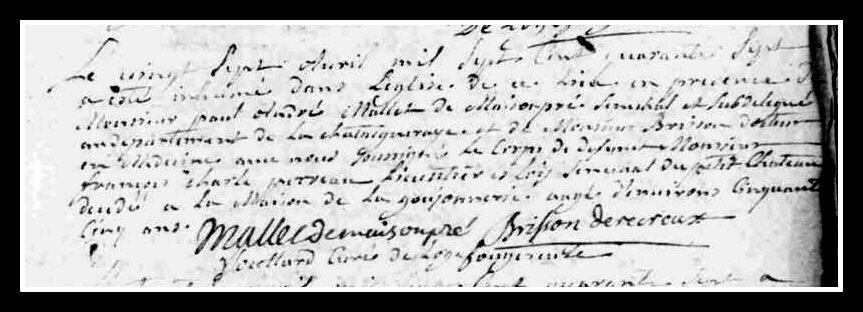 Le vingt Sept Avril mil Sept Cent quarante Sept
a été inhumé dans L'eglise de ce lieu en presence de
Monsieur paul André Mallet de Maisonpré Senechal et Subdelegué
au departement de La chataigneraye et de Monsieur Brisson docteur
en Medecine que nous Soussignés Le Corps de defunct Monsieur
françois Charle perreau Licentier es loix Senechal du petit Chateau
decedé a La Maison de La goujonnerie augé d'environs Cinquant
Cinq ans.
Mallet de maisonpré Brisson
Curé de
mil Cent quarante Sept a